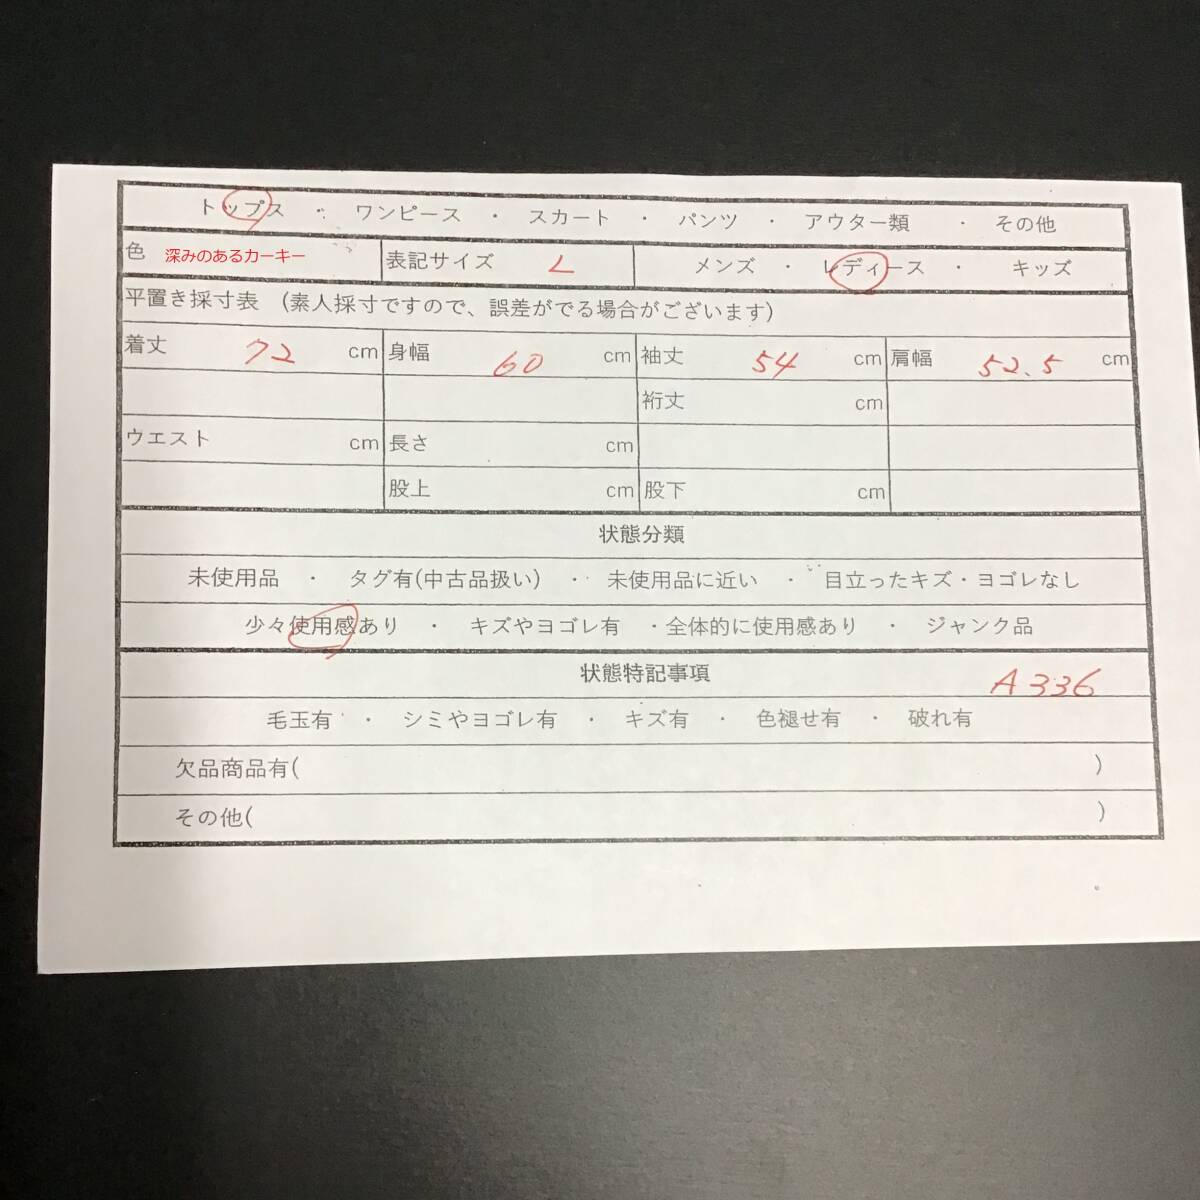 トップス ・ ワンピース ・ スカート ・ パンツ ・ アウター類 ・ その他
色 深みのあるカーキー 表記サイズ L メンズ ・ レディース ・ キッズ
平置き採寸表 (素人採寸ですので、誤差がでる場合がございます)
着丈 72 cm 身幅 60 cm 袖丈 54 cm 肩幅 52.5 cm
裄丈 cm
ウエスト cm 長さ cm
股上 cm 股下 cm
状態分類
未使用品 ・ タグ有(中古品扱い) ・ 未使用品に近い ・ 目立ったキズ・ヨゴレなし
少々使用感あり ・ キズやヨゴレ有 ・全体的に使用感あり ・ ジャンク品
状態特記事項 A336
毛玉有 ・ シミやヨゴレ有 ・ キズ有 ・ 色褪せ有 ・ 破れ有
欠品商品有( )
その他( )